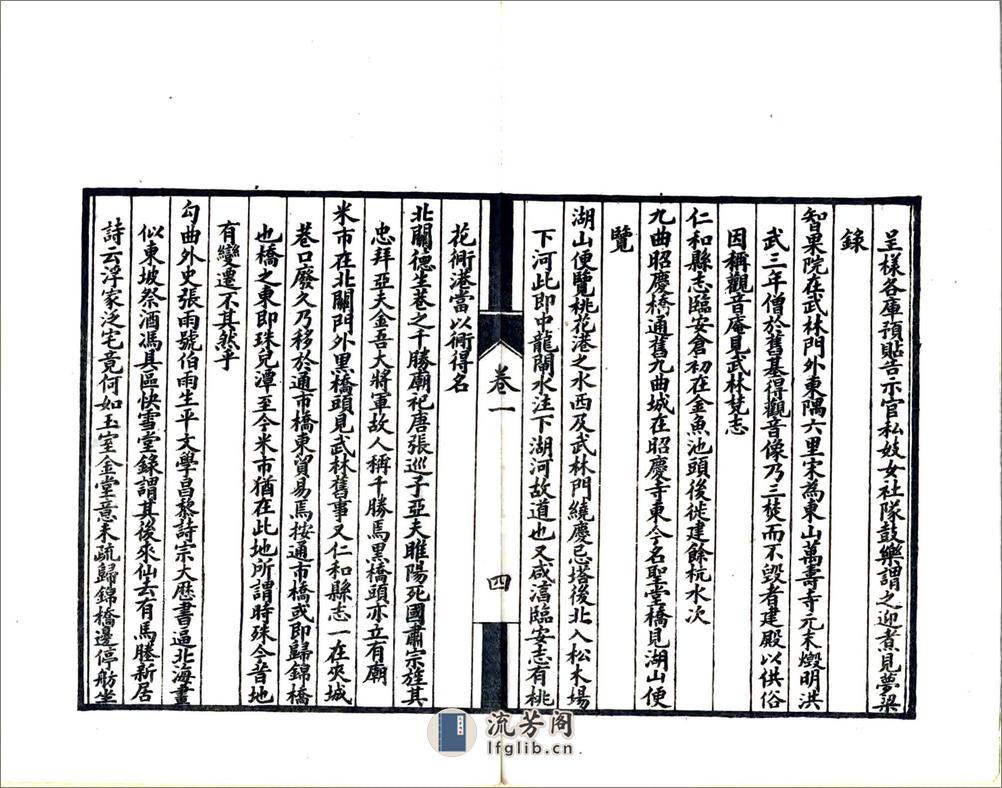 呈樣各庫預貼告示官私妓女社隊鼓樂謂之迎煮見夢梁
錄
智果院在武林門外東隅六里宋為東山萬壽寺元末燬明洪
武三年僧於舊基得觀音像乃三焚而不毀者建殿以供俗
因稱觀音庵見武林梵志
仁和縣志臨安倉初在金魚池頭後徙建餘杭水次
九曲昭慶橋通舊九曲城在昭慶寺東今名聖堂橋見湖山便
覽
湖山便覽桃花港之水西及武林門繞慶忌塔後北入松木場
下河此即中龍閘水注下湖河故道也又咸淳臨安志有桃
卷一
四
花衕港當以衕得名
北關德生巷之千勝廟祀唐張巡子亞夫睢陽死國肅宗旌其
忠拜亞夫金吾大將軍故人稱千勝焉黑橋頭亦立有廟
米市在北關門外黑橋頭見武林舊事又仁和縣志一在夾城
巷口廢久乃移於通市橋東貿易焉按通市橋或即歸錦橋
也橋之東即珠兒潭至今米市猶在此地所謂時殊今昔地
有變遷不其然乎
勾曲外史張雨號伯雨生平文學昌黎詩宗大歷書逼北海畫
似東坡祭酒馮具區快雪堂錄謂其後來仙去有馬塍新居
詩云浮家泛宅竟何如玉室金堂意未疏歸錦橋邊停舫坐
流芳阁
lfglib.cn